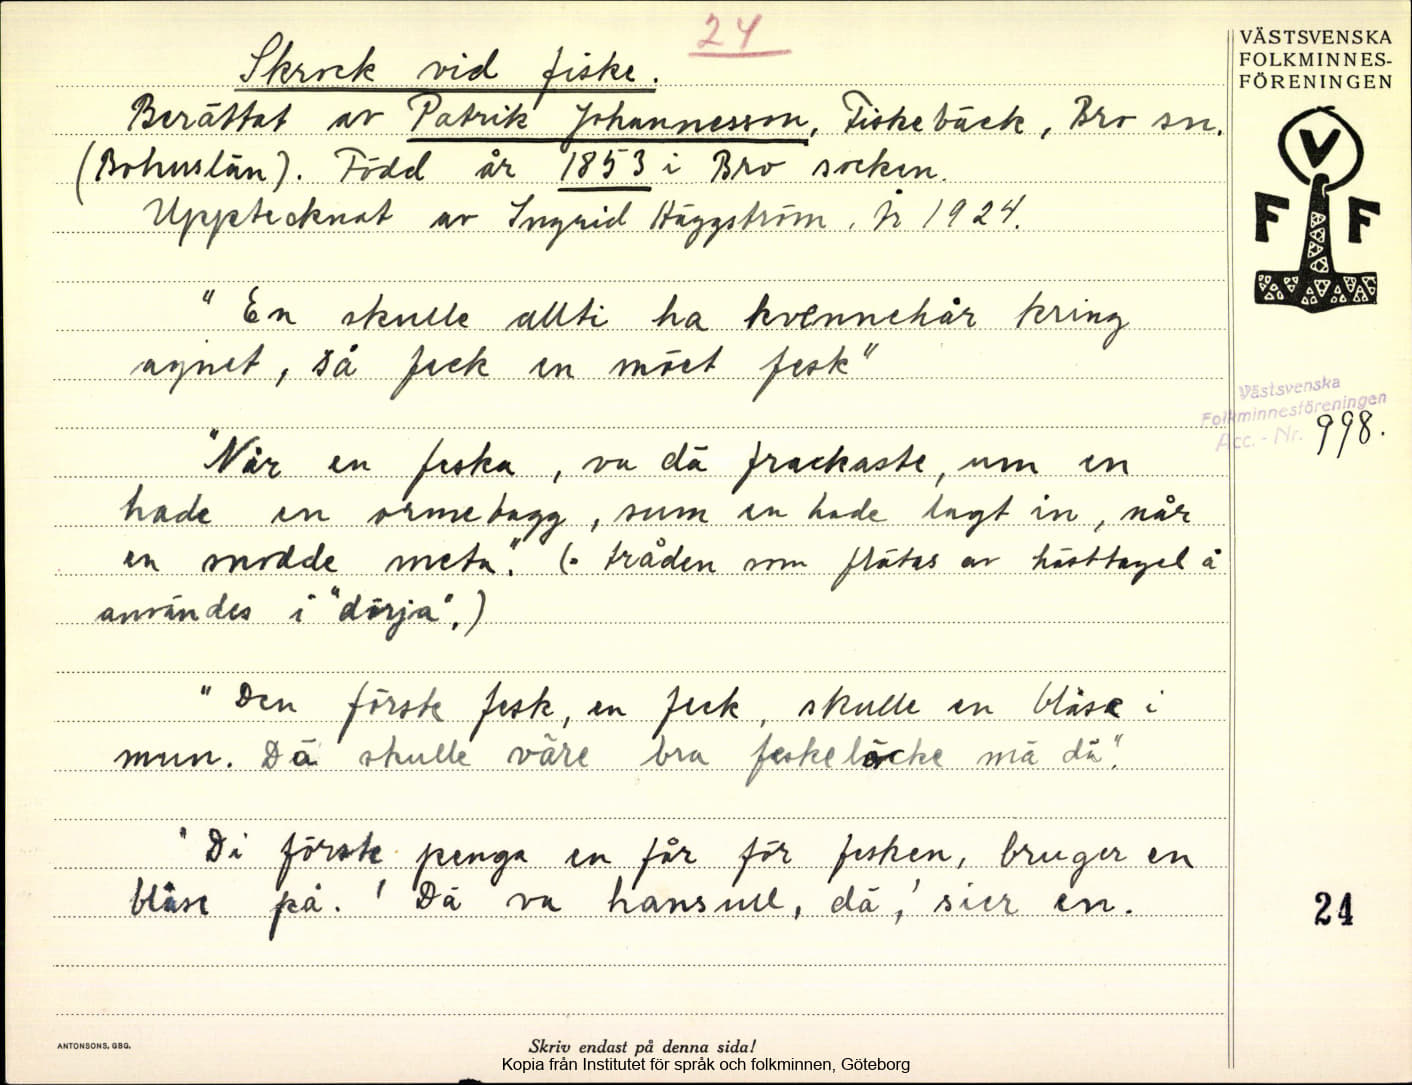 24
Skrock vid fiske.
Berättat av Patrik Johannesson, Fiskebäck, Bro sn.
(Bohuslän). Född år 1853 i Bro socken.
Upptecknat av Ingrid Häggström, år 1924.
" En skulle allti ha kvennehår kring
agnet, så feck en möet fesk"
"Når en feska, va dä frackaste, um en
hade en ormebagg, sum en hade lagt in, når
en snodde meta". (= tråden som flätas av hästtagel å
användes i "dörja".)
" Den förste fesk, en feck, skulle en blåse i
mun. Dä skulle väre bra feskeløcke mä dä".
" Di förste penga en får för fesken, bruger en
blåse på. ' Dä va hansull, dä,' sier en.
VÄSTSVENSKA
FOLKMINNES-
FÖRENINGEN
V
F F
Västsvenska
Folkminnesföreningen
Acc. - Nr. 998.
24
ANTONSONS, GBG.
Skriv endast på denna sida!
Kopia från Institutet för språk och folkminnen, Göteborg